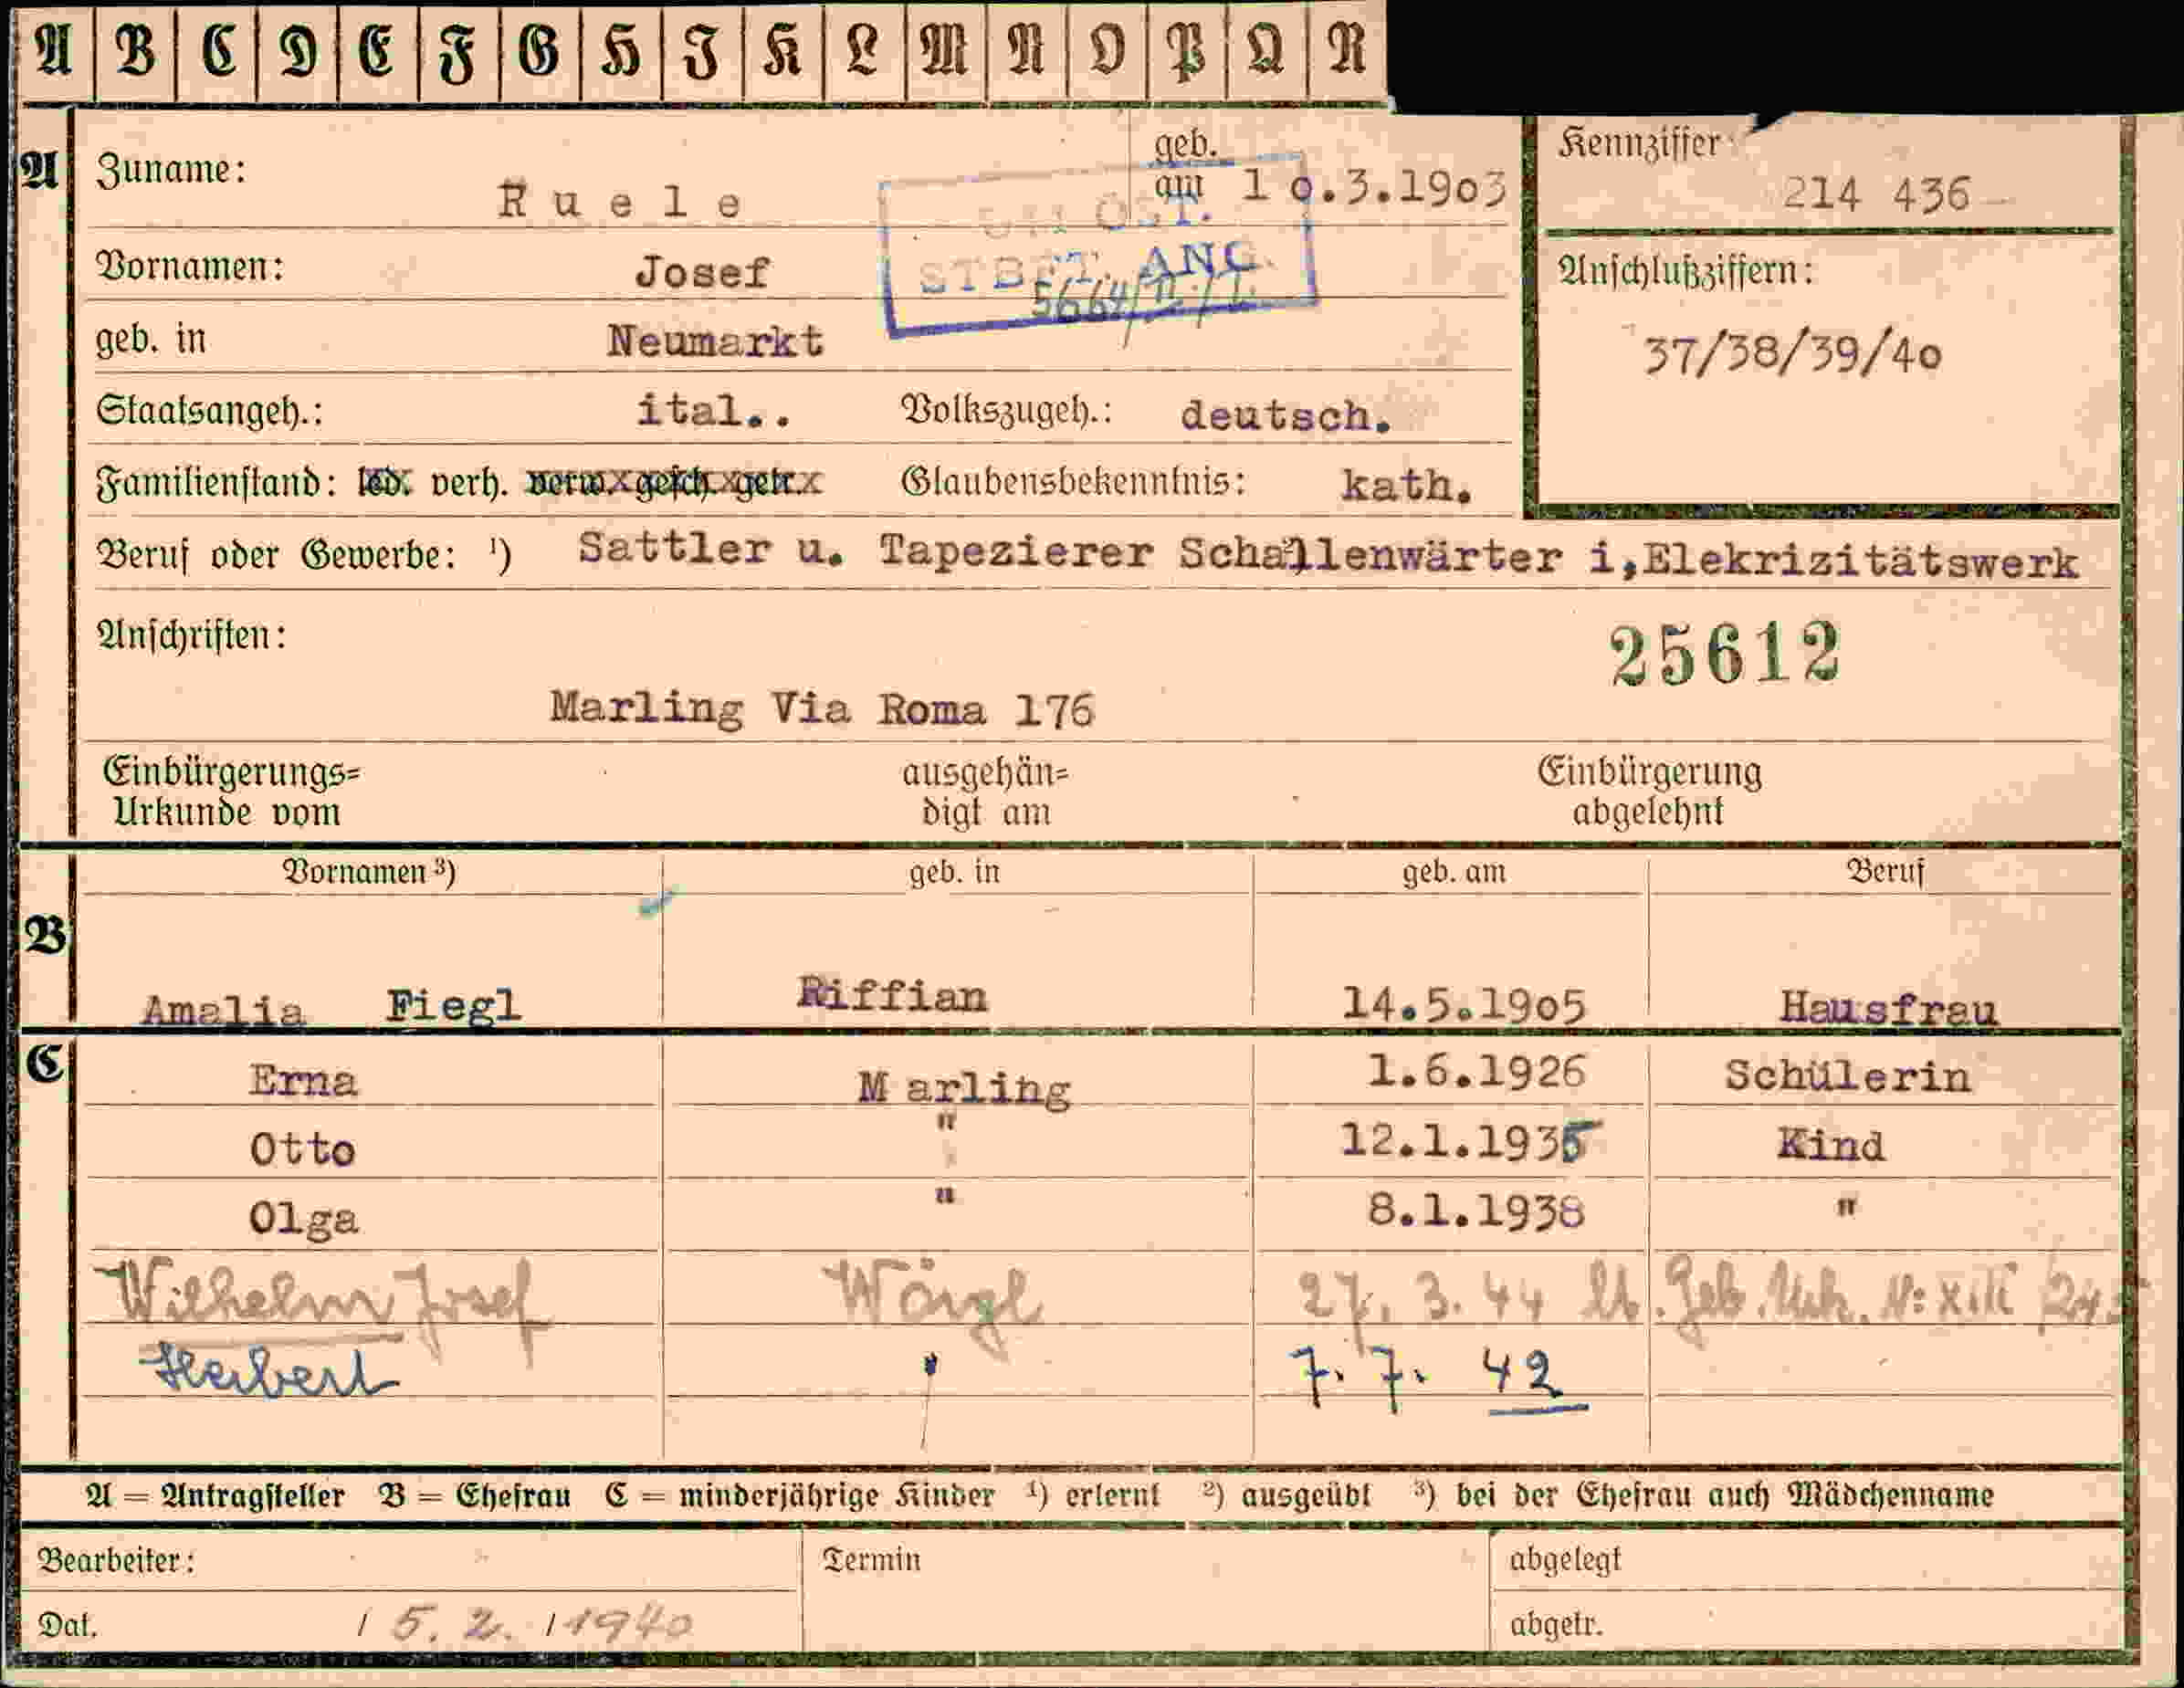 A B C D E F G H I K L M N O P Q R
A Zuname: Ruele geb. am 10.3.1903 Kennziffer 214 436
STBFT. ANG.
Vornamen: Josef Anschlußziffern:
geb. in Neumarkt 37/38/39/40
Staatsangeh.: ital.. Volkszugeh.: deutsch.
Familienstand: led. verh. verw. gesch. getr. Glaubensbekenntnis: kath.
Beruf oder Gewerbe: ¹) Sattler u. Tapezierer Schallenwärter i,Elekrizitätswerk
Anschriften: 25612
Marling Via Roma 176
Einbürgerungs= ausgehän= Einbürgerung
Urkunde vom digt am abgelehnt
Vornamen ³) geb. in geb. am Beruf
B
Amalia Fiegl Riffian 14.5.1905 Hausfrau
C Erna Marling 1.6.1926 Schülerin
Otto " 12.1.1935 Kind
Olga " 8.1.1938 "
Wilhelm Josef Wörgl 27. 3. 44 lt. Geb. Urk. N: XIII
Herbert " 7. 7. 42
A = Antragsteller B = Ehefrau C = minderjährige Kinder ¹) erlernt ²) ausgeübt ³) bei der Ehefrau auch Mädchenname
Bearbeiter: Termin abgelegt
Dat. / 5. 2. / 1940 abgetr.